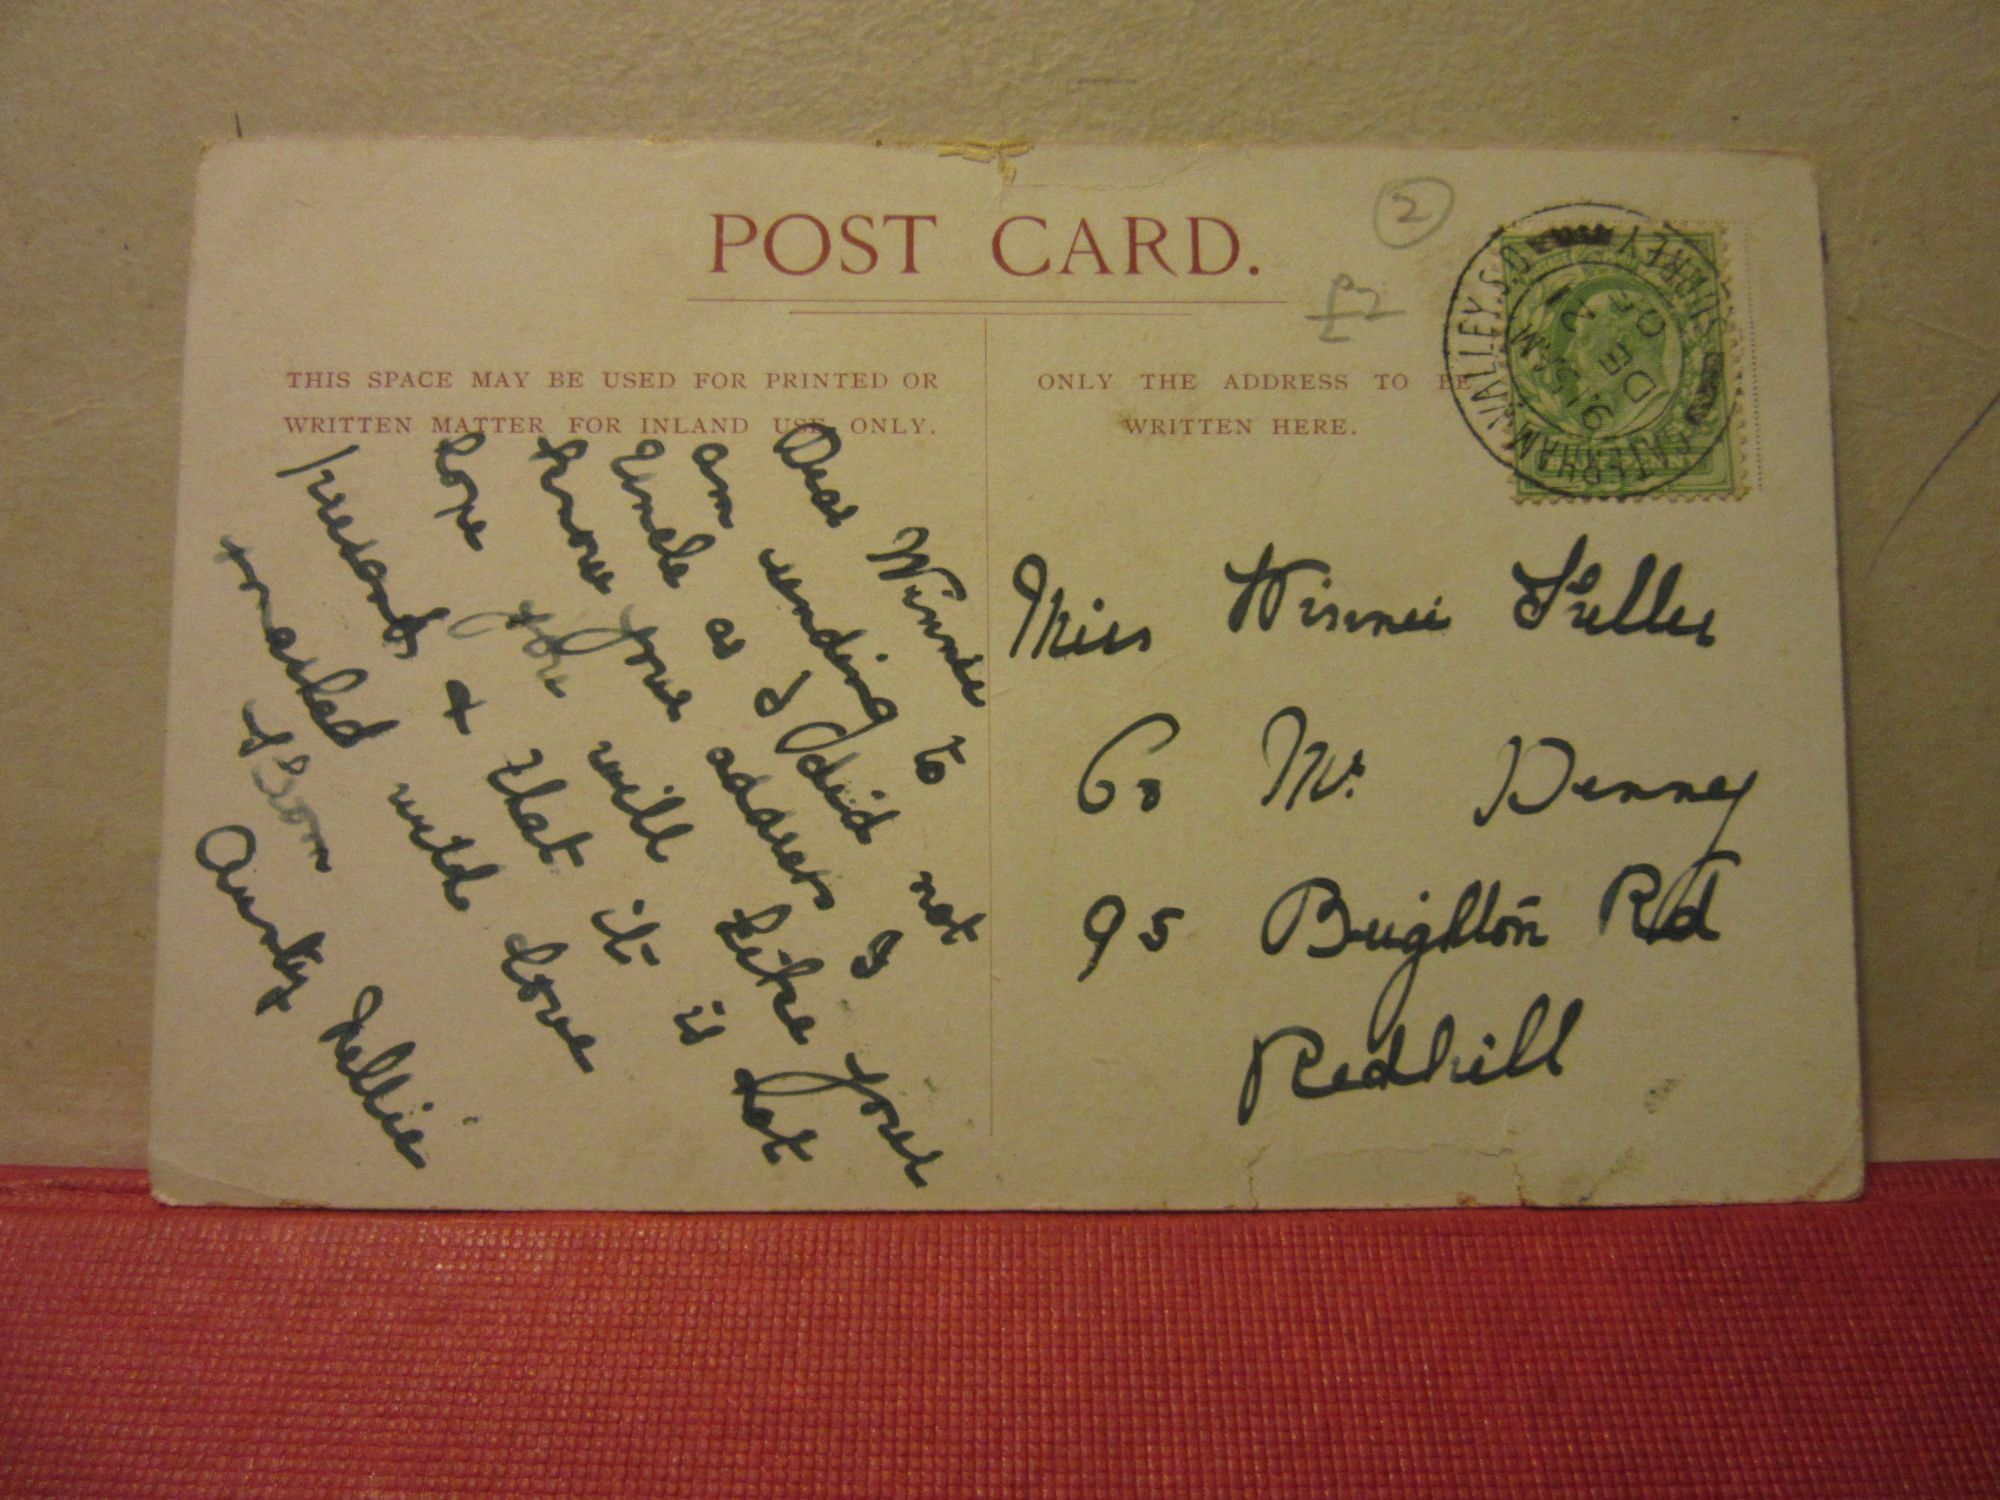 POST CARD.
2
£2
THIS SPACE MAY BE USED FOR PRINTED OR
WRITTEN MATTER FOR INLAND USE ONLY.
ONLY THE ADDRESS TO BE
WRITTEN HERE.
CATERHAM VALLEY.S.O. SURREY
9.15AM
DE
05
Dear Winnie
am sending to
Uncle as I did not
know your adders I
hope you will like your
presant & that it is not
marked with love
from
Aunty Nellie
Miss Winnie Fuller
Co Mr Denney
95 Brighton Rd
Redhill